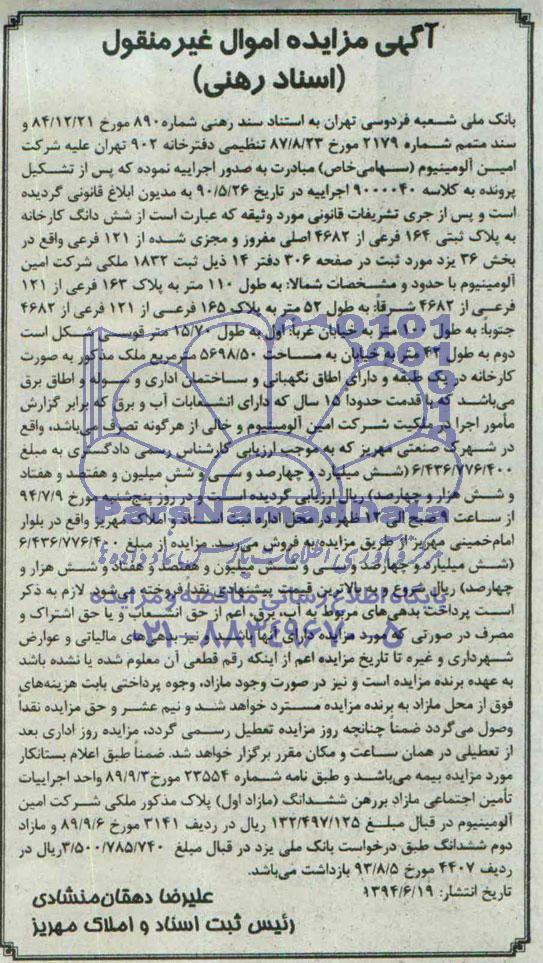 آگهی مزایده اموال غیرمنقول
(اسناد رهنی)
بانک ملی شعبه فردوسی تهران به استناد سند رهنی شماره ۸۹۰ مورخ ۸۴/۱۲/۲۱ و
سند متمم شماره ۲۱۷۹ مورخ ۸۷/۸/۲۳ تنظیمی دفترخانه ۹۰۲ تهران علیه شرکت
امین آلومینیوم (سهامی‌خاص) مبادرت به صدور اجراییه نموده که پس از تشکیل
پرونده به کلاسه ۹۰۰۰۰۴۰ اجراییه در تاریخ ۹۰/۵/۲۶ به مدیون ابلاغ قانونی گردیده
است و پس از جری تشریفات قانونی مورد وثیقه که عبارت است از شش دانگ کارخانه
به پلاک ثبتی ۱۶۴ فرعی از ۴۶۸۲ اصلی مفروز و مجزی شده از ۱۲۱ فرعی واقع در
بخش ۳۶ یزد مورد ثبت در صفحه ۳۰۶ دفتر ۱۴ ذیل ثبت ۱۸۳۲ ملکی شرکت امین
آلومینیوم با حدود و مشخصات شمالا: به طول ۱۱۰ متر به پلاک ۱۶۳ فرعی از ۱۲۱
فرعی از ۴۶۸۲ شرقا: به طول ۵۲ متر به پلاک ۱۶۵ فرعی از ۱۲۱ فرعی از ۴۶۸۲
جنوبا: به طول ۱۰۰ متر به خیابان غربا: اول به طول ۱۵/۷۰ متر قوسی شکل است
دوم به طول ۴۲ متر به خیابان به مساحت ۵۶۹۸/۵۰ مترمربع ملک مذکور به صورت
کارخانه در یک طبقه و دارای اطاق نگهبانی و ساختمان اداری و سوله و اطاق برق
می‌باشد که با قدمت حدودا ۱۵ سال که دارای انشعابات آب و برق که برابر گزارش
مأمور اجرا در ملکیت شرکت امین آلومینیوم و خالی از هرگونه تصرف می‌باشد، واقع
در شهرک صنعتی مهریز که به موجب ارزیابی کارشناس رسمی دادگستری به مبلغ
۶/۴۳۶/۷۷۶/۴۰۰ (شش میلیارد و چهارصد و سی و شش میلیون و هفتصد و هفتاد
و شش هزار و چهارصد) ریال ارزیابی گردیده است و در روز پنج‌شنبه مورخ ۹۴/۷/۹
از ساعت ۹ صبح الی ۱۲ ظهر در محل اداره ثبت اسناد و املاک مهریز واقع در بلوار
امام‌خمینی مهریز از طریق مزایده به فروش می‌رسد. مزایده از مبلغ ۶/۴۳۶/۷۷۶/۴۰۰
(شش میلیارد و چهارصد و سی و شش میلیون و هفتصد و هفتاد و شش هزار و
چهارصد) ریال شروع و به بالاترین قیمت پیشنهادی نقدا فروخته می‌شود. لازم به ذکر
است پرداخت بدهی‌های مربوط به آب، برق، اعم از حق انشعاب و یا حق اشتراک و
مصرف در صورتی که مورد مزایده دارای آنها باشد و نیز بدهی‌های مالیاتی و عوارض
شهرداری و غیره تا تاریخ مزایده اعم از اینکه رقم قطعی آن معلوم شده یا نشده باشد
به عهده برنده مزایده است و نیز در صورت وجود مازاد، وجوه پرداختی بابت هزینه‌های
فوق از محل مازاد به برنده مزایده مسترد خواهد شد و نیم عشر و حق مزایده نقدا
وصول می‌گردد ضمنا چنانچه روز مزایده تعطیل رسمی گردد، مزایده روز اداری بعد
از تعطیلی در همان ساعت و مکان مقرر برگزار خواهد شد. ضمنا طبق اعلام بستانکار
مورد مزایده بیمه می‌باشد و طبق نامه شماره ۲۳۵۵۴ مورخ ۸۹/۹/۳ واحد اجراییات
تأمین اجتماعی مازاد بررهن ششدانگ (مازاد اول) پلاک مذکور ملکی شرکت امین
آلومینیوم در قبال مبلغ ۱۳۲/۴۹۷/۱۲۵ ریال در ردیف ۳۱۴۱ مورخ ۸۹/۹/۶ و مازاد
دوم ششدانگ طبق درخواست بانک ملی یزد در قبال مبلغ ۳/۵۰۰/۷۸۵/۷۴۰ ریال در
ردیف ۴۴۰۷ مورخ ۹۳/۸/۵ بازداشت می‌باشد.
تاریخ انتشار: ۱۳۹۴/۶/۱۹
علیرضا دهقان‌منشادی
رئیس ثبت اسناد و املاک مهریز
ParsNamadData
۰۲۱-۸۸۳۴۹۶۷۰-۵